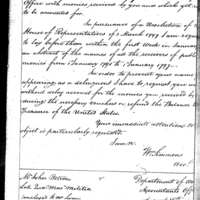 Office with monies received by you and which ought
to be accounted for.
In pursuance of a Resolution of
House of Representatives of 3 March 1797 I am requir
to lay before them within the first week in January
an abstract of the names of all the receivers of public
monies from 1 January 1796 to 1 January 1797.
In order to prevent your name
appearing as a delinquent I have to request you w
without delay account for the monies you received by
ducing the necessary vouchers or refund the Balance
Treasurer of the United States.
Your immediate attention to
object is particularly requested.
I am &c
Wm Simmons
acct
Mr John
Department of War
Accountants Of